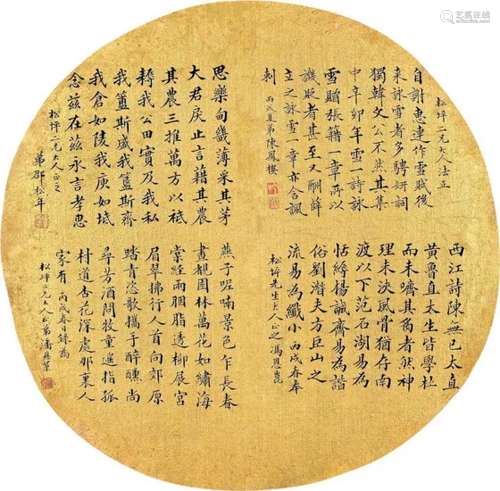 松坪二兄大人法正
自謝惠連作雪賦後
來詠雪者多騁妍詞
獨韓文公不然其集
中辛卯年雪一詩詠
雪贈張籍一章所以
譏貶者甚至又刪薛
立之詠雪一章亦含諷
刺 丙戌夏弟陳鳳樓
思樂旬畿薄采其芳
大君戾止言藉其農
其農三推萬方以祗
耨我公田實及我私
我簠斯盛我簋斯齊
我倉如陵我庾如坻
念茲在茲永言孝思
松坪二兄大人正之
弟邵松年
西江詩陳無已太直
黃魯直太生皆學杜
而未嚌其胾者然神
理未浹風骨猶存南
渡以下范石湖易為
恬縟楊誠齋易為諧
俗劉潛夫方巨山之
流易為纖小 丙戌春奉
松坪先生大人正之 馮恩崑
燕子呢喃景色乍長春
晝覩園林萬花如繡海
棠經雨胭脂透柳展宮
眉翠拂行人首向郊原
踏青恣歌攜手醉醺尚
尋芳酒問牧童遙指孤
村道杏花深處那裏人
家有 丙戌春日錄為
松坪二兄大人正 弟潘
艺狐在线